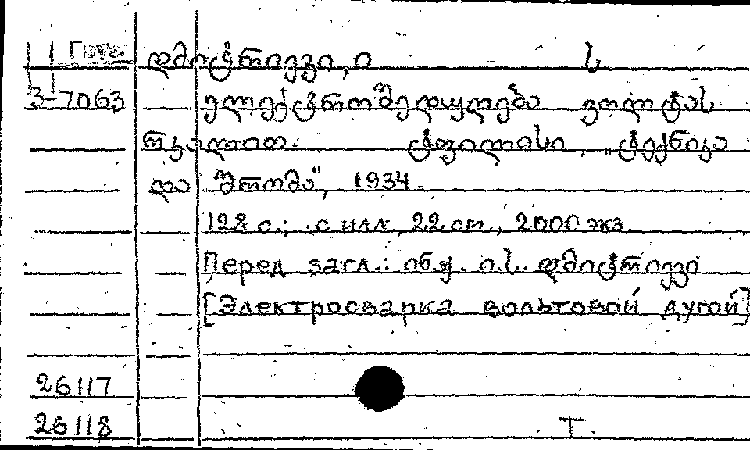 დმიტრიევი, ი ს
3-7063 ელექტროშედუღება ვოლტას
რკალით. ტფილისი, „ტექნიკა
და შრომა", 1934.
128 с.; с илл, 22 см, 2000 экз
Перед загл.: ინჟ. ი.ს. დმიტრიევი
[Электросварка вольтовой дугой]
26117
26118 Т.